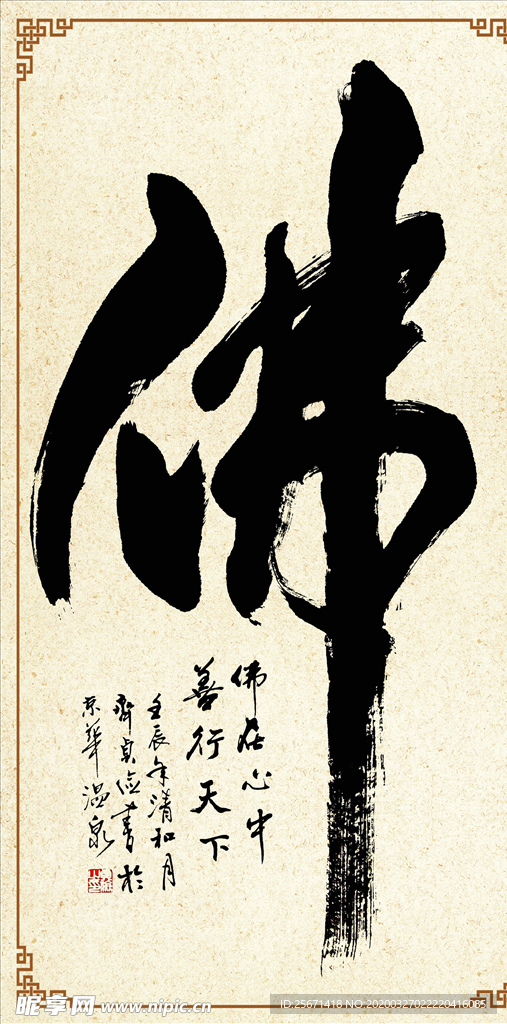 佛
佛在心中
善行天下
壬辰年清和月
齐贞俭书於
京华温泉
昵享网 www.nipic.cn
ID:25671418 NO:20200327022220416085